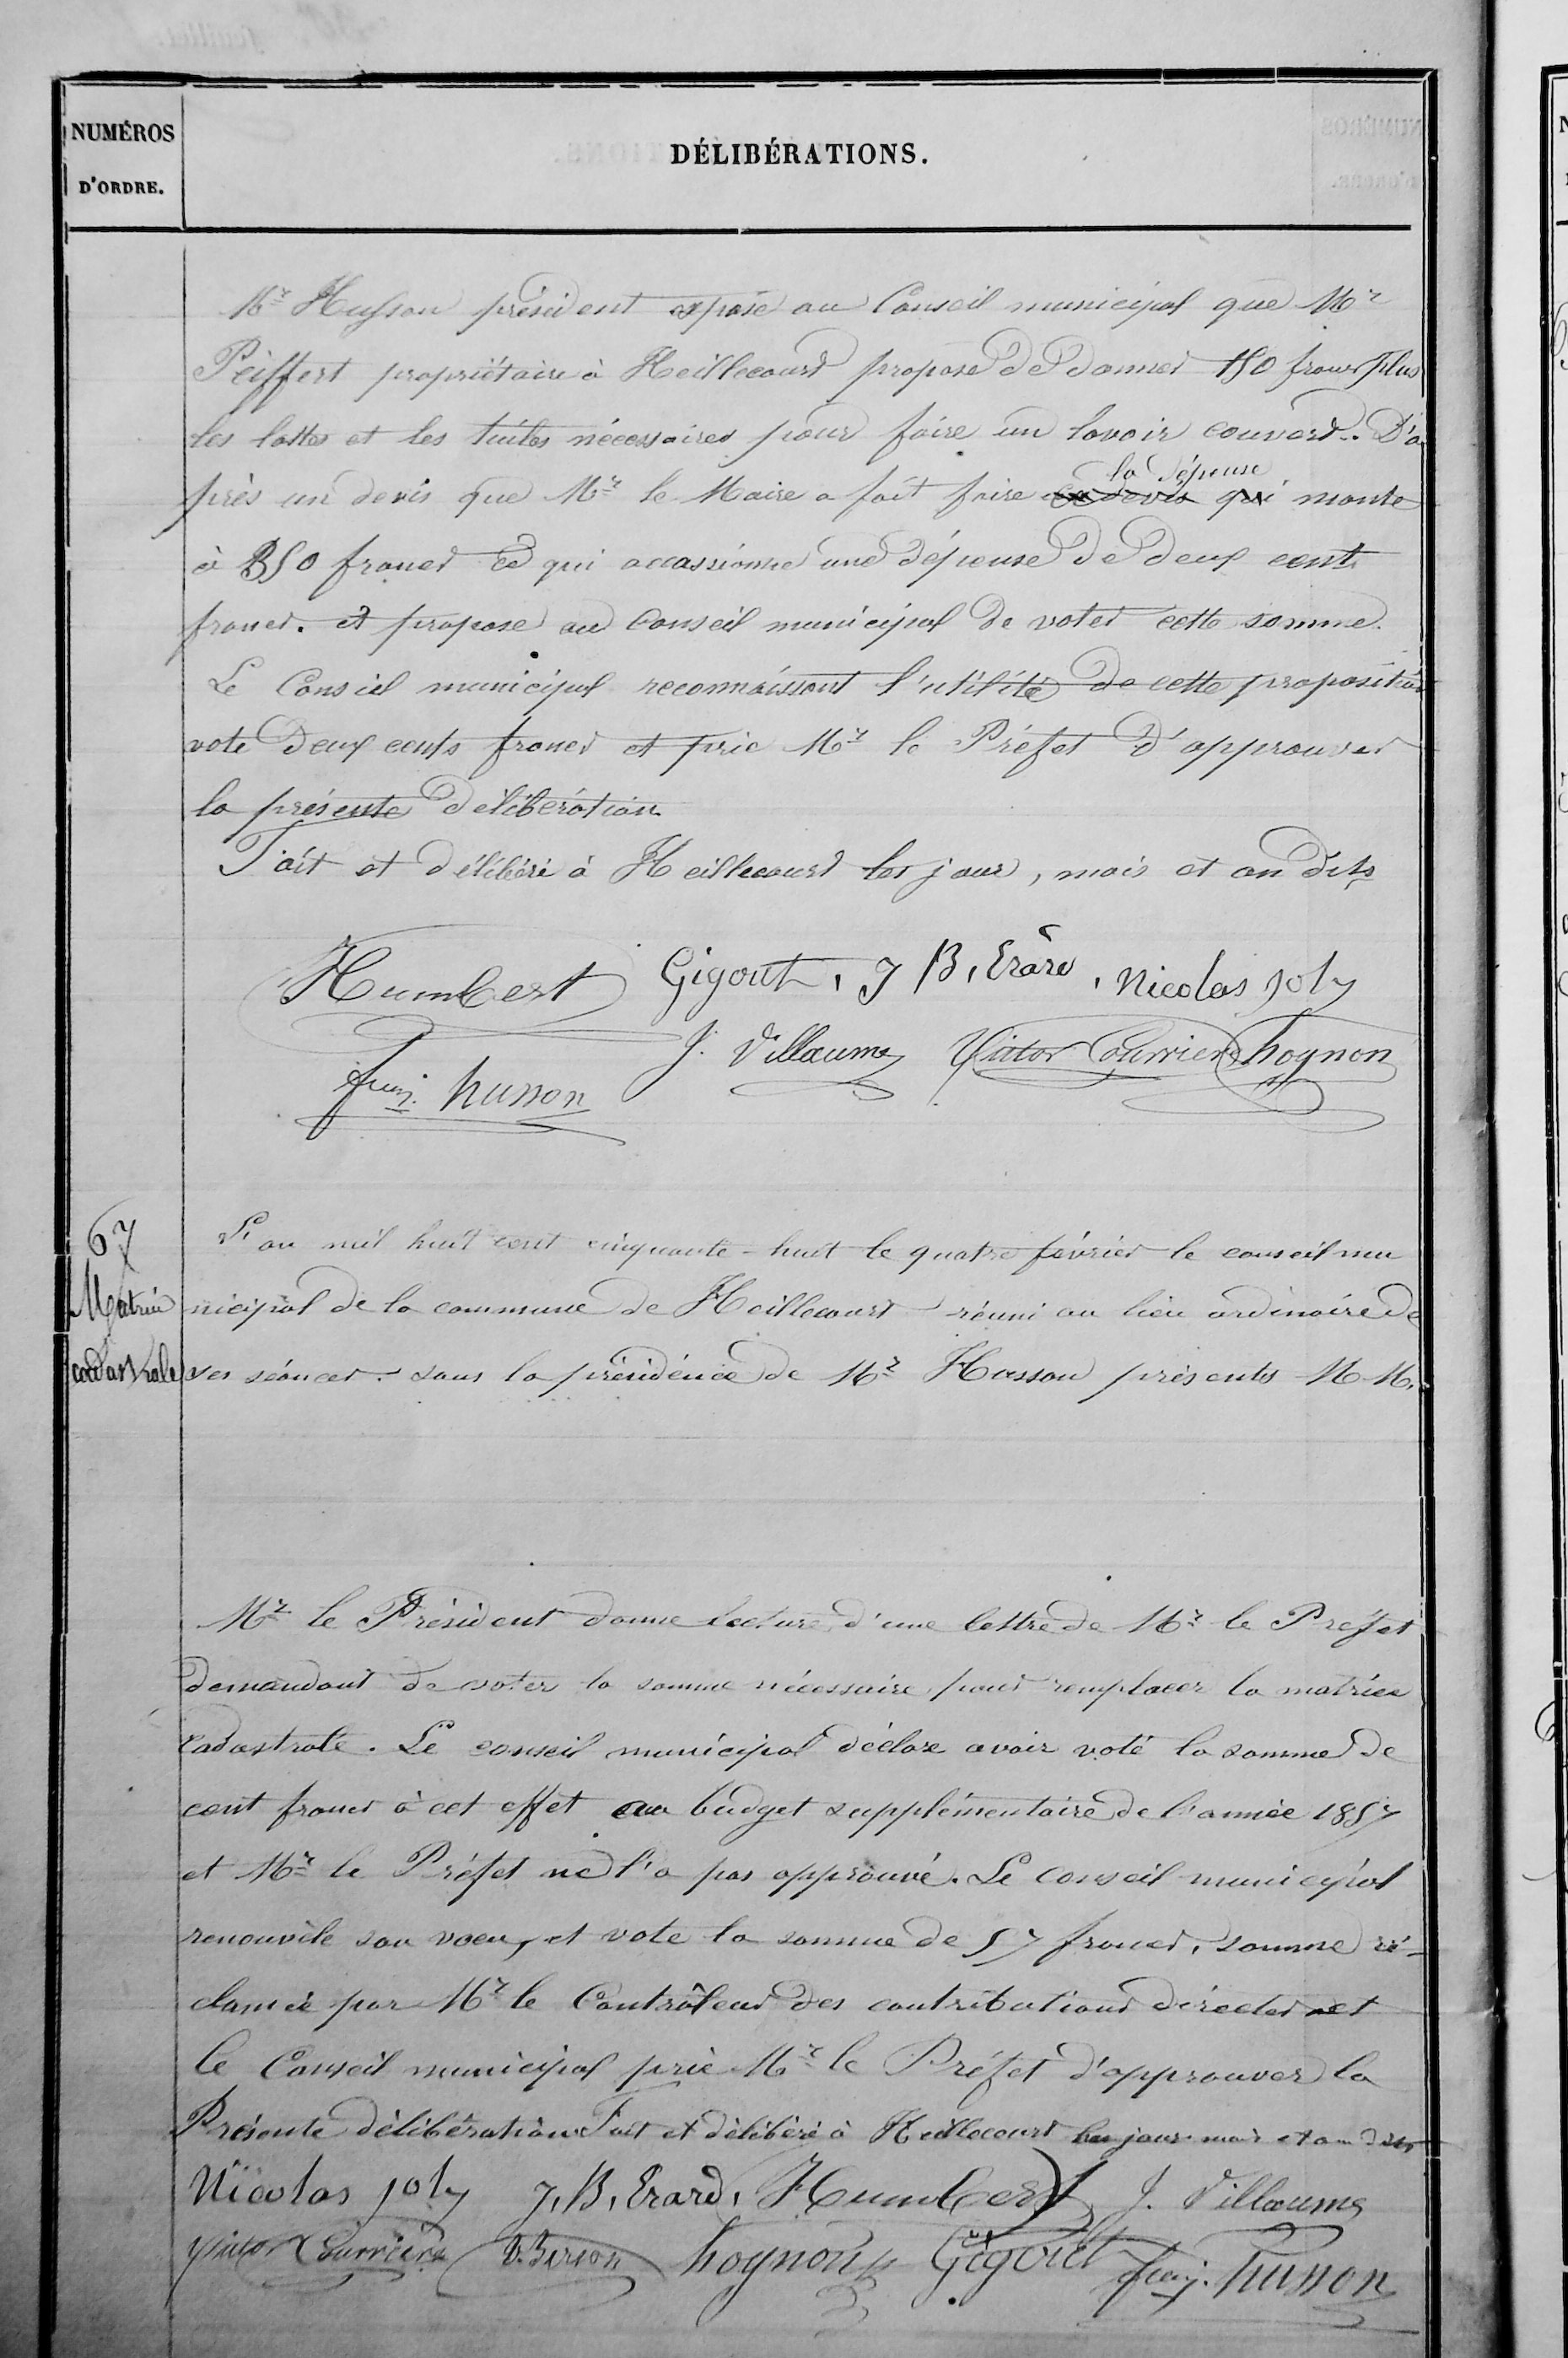 NUMÉROS
D'ORDRE.
DÉLIBÉRATIONS.
Mr Husson président expose au Conseil municipal que Mr
Peiffert propriétaire à Heillecourt propose de donner 150 francs plus
les lattes et les tuiles nécessaires pour faire un lavoir couvert. D'a
près un devis que Mr le Maire a fait faire ce devis qui la dépense monte
à 350 francs ce qui occassionne une dépense de deux cent
francs. et propose au Conseil municipal de voter cette somme.
Le Conseil municipal reconnaissant l'utilité de cette proposition
vote deux cents francs et prie Mr le Préfet d'approuver
la présente délibération
Fait et délibéré à Heillecourt les jour, mois et an dits
Humbert Gigout, J B, Erard, Nicolas joly
J. Villaume Victor Courrier hognon
husson
67
Matrice
cadastrale
L'an mil huit cent cinquante-huit le quatre février le conseil mu
nicipal de la commune de Heillecourt réuni au lieu ordinaire de
ses séances. sous la présidence de Mr Husson présents M. M.
Mr le Président donne lecture d'une lettre de Mr le Préfet
demandant de voter la somme nécessaire pour remplacer la matrice
Cadastrale. Le conseil municipal déclare avoir voté la somme de
cent francs à cet effet au budget supplémentaire de l'année 1857
et Mr le Préfet ne l'a pas approuvé. Le conseil municipal
renouvèle son voeu, et vote la somme de 57 francs, somme ré-
clamée par Mr le Contrôleur des contributions directes et
le Conseil municipal prie Mr le Préfet d'approuver la
Présente délibération Fait et délibéré à Heillecourt les jour mois et an dits
Nicolas joly J, B, Erard, Humbert J. Villaume
Victor Courrier hognon Gigout husson